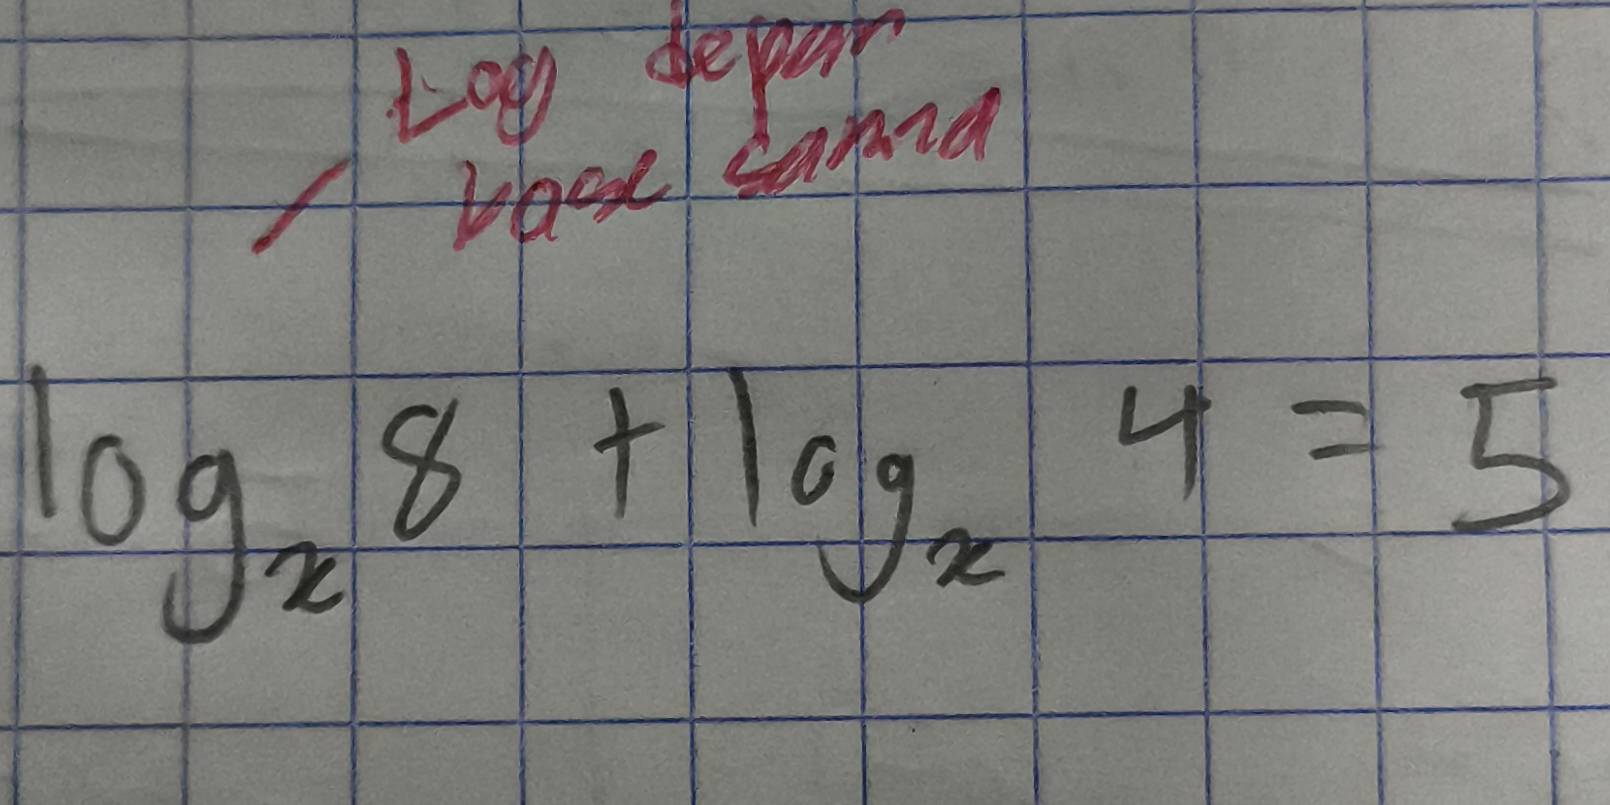 Log depan
base sama
log_x 8 + log_x 4 = 5